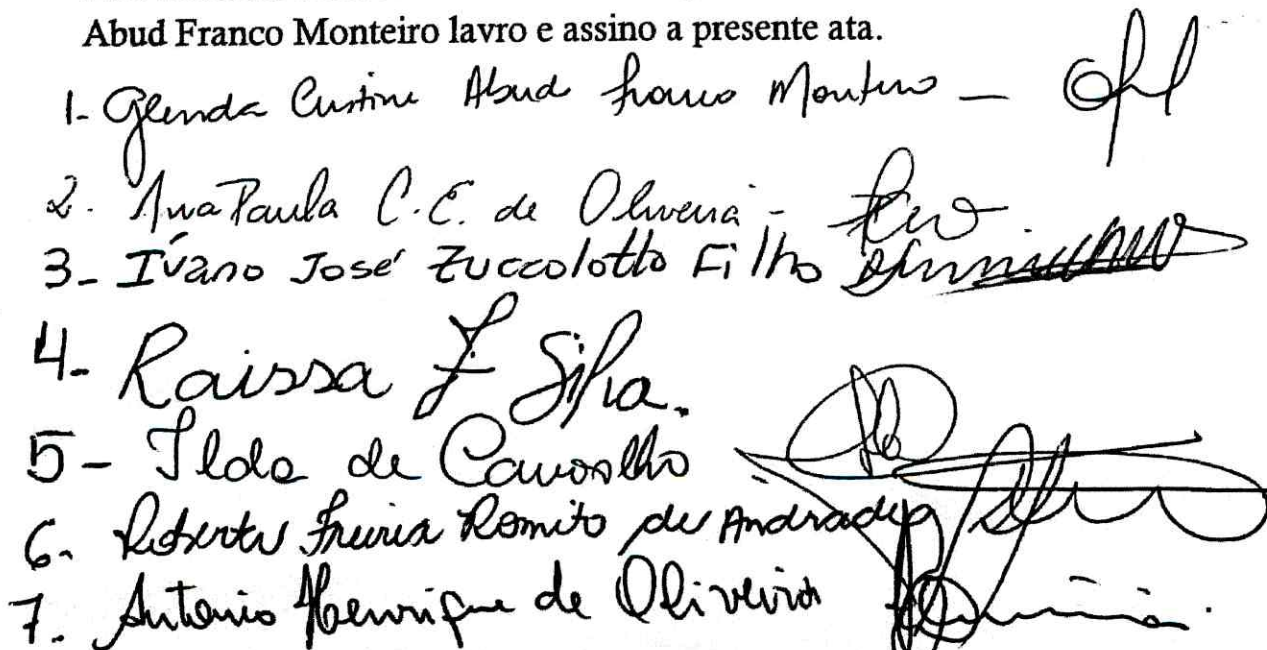 Abud Franco Monteiro lavro e assino a presente ata.
1- Glenda Cristine Abud Franco Monteiro -
2. Ana Paula C. C. de Oliveira -
3- Ivano José Zuccolotto Filho
4- Raissa F Silva.
5- Ilda de Carvalho
6. Roberta Freiria Romito de Andrade
7. Antonio Henrique de Oliveira